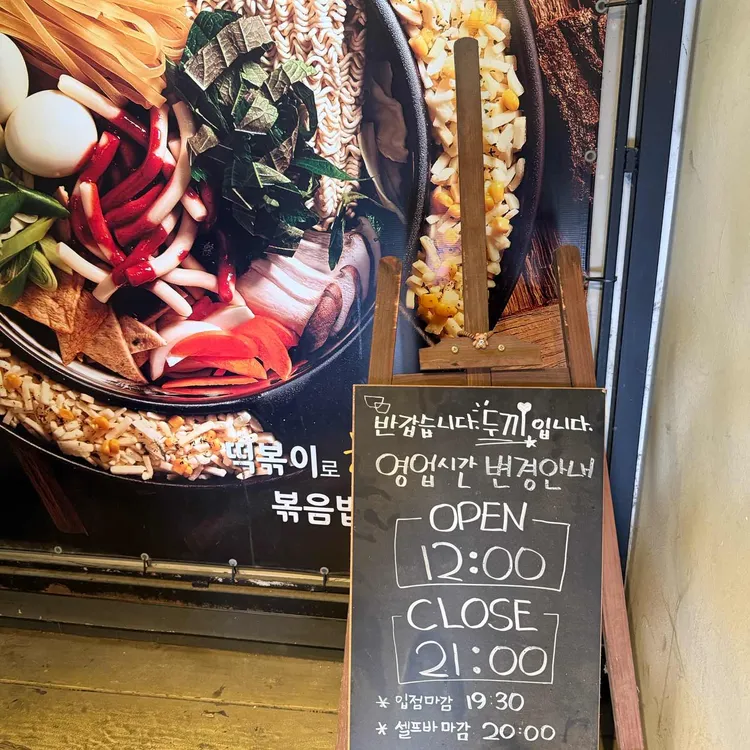 떡볶이로
볶음밥
반갑습니다. 두끼입니다.
영업시간 변경안내
OPEN
12:00
CLOSE
21:00
* 입점마감 19:30
* 셀프바 마감 20:00